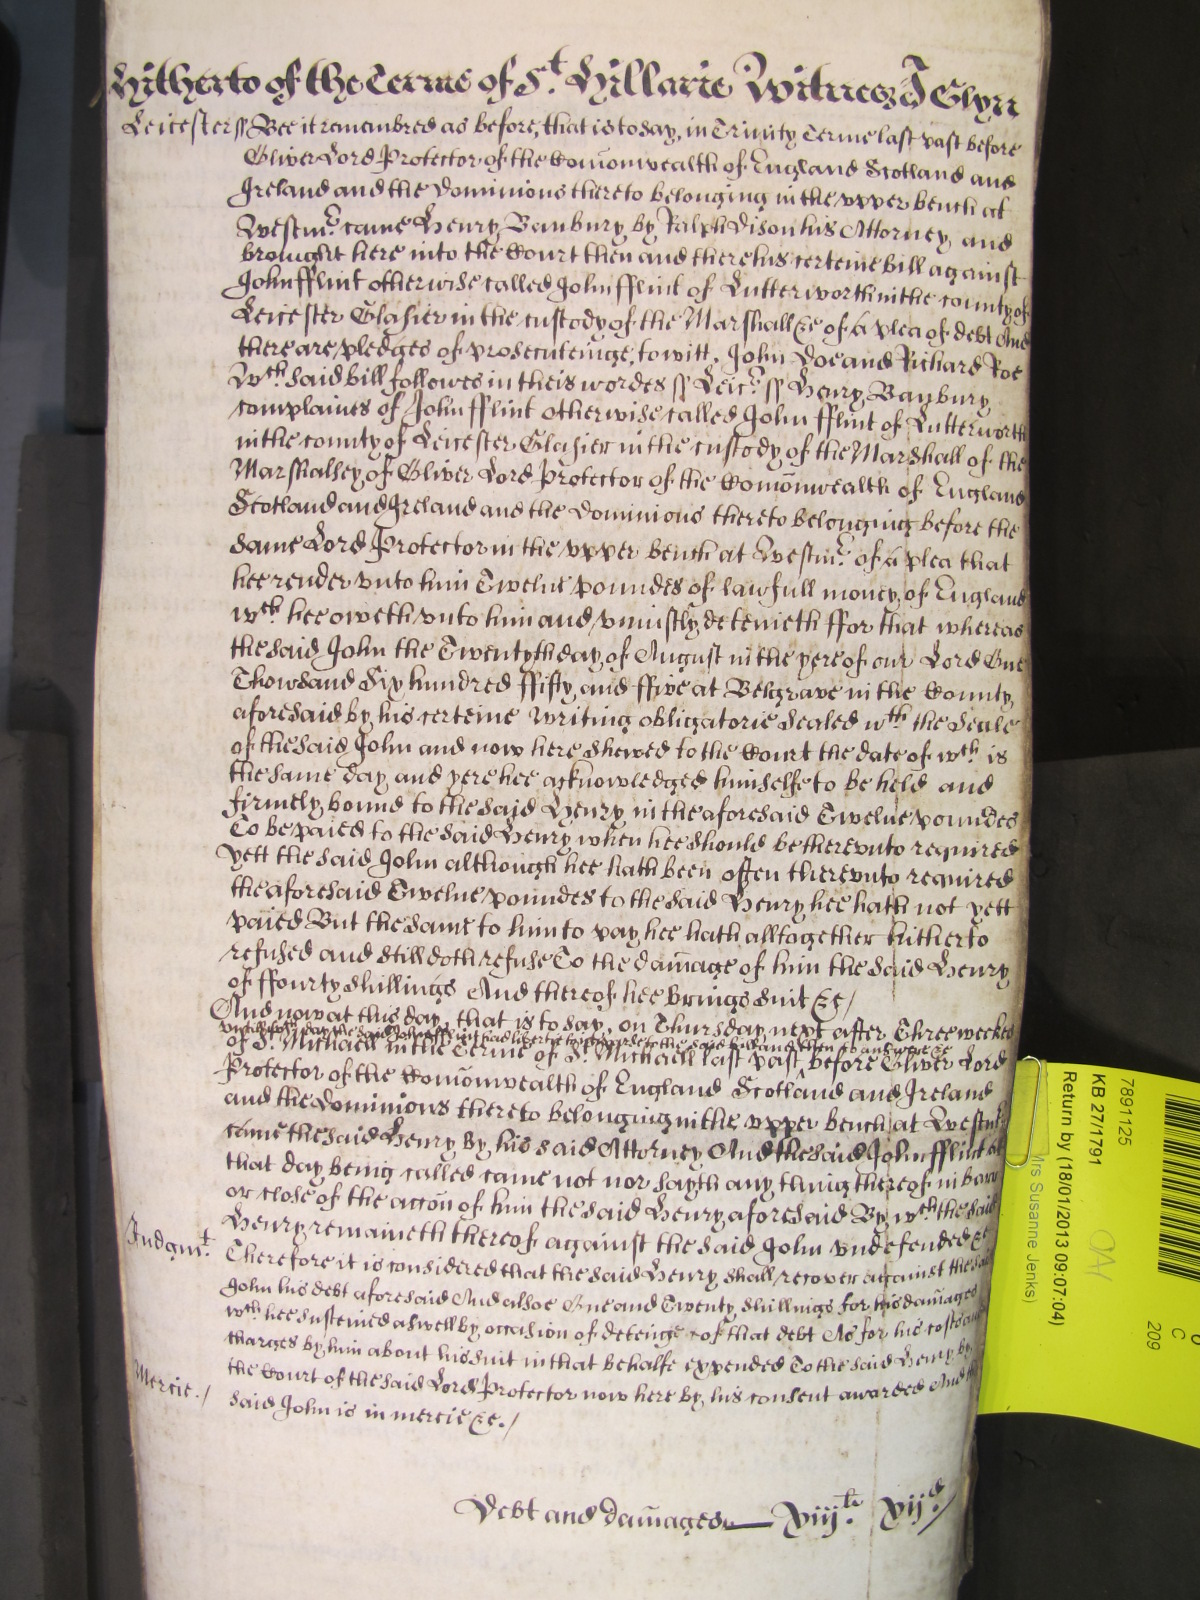 Hitherto of the Terme of St. Hillarie Witnes J Glyn
Leicester ss Bee it remembred as before, that is to say, in Trinity Terme last past before
Oliver Lord Protector of the Com̄onwealth of England Scotland and
Ireland and the Dominions thereto belonging in the vpper bench at
Westmr. came Henry Banbury by Ralph Dison his Attorney, and
brought here into the Court then and there his certeine bill against
John fflint otherwise called John fflint of Lutterworth in the county of
Leicester Glasier in the custody of the Marshall &c of a plea of debt And
there are pledges of prosecuteinge, to witt, John Doe and Richard Roe
Wch. said bill followes in theis wordes ss Leicr. ss Henry Banbury
complaines of John fflint otherwise called John fflint of Lutterworth
in the county of Leicester Glasier in the custody of the Marshall of the
Marshalsey of Oliver Lord Protector of the Com̄onwealth of England
Scotland and Ireland and the Dominions thereto belonging before the
same Lord Protector in the vpper bench at Westmr. of a plea that
hee render vnto him Twelue poundes of lawfull money of England
wch. hee oweth vnto him and vniustly deteineth ffor that whereas
the said John the Twentyth day of August in the yere of our Lord One
Thowsand Six hundred ffifty and ffive at Belgrave in the County
aforesaid by his certeine writing obligatorie sealed wth the Seale
of the said John and now here shewed to the Court the date of wch. is
the same day and yere hee acknowledged himselfe to be held and
firmely bound to the said Henry in the aforesaid Twelue poundes
To be paied to the said Henry when hee should be therevnto required
yett the said John although hee hath been often therevnto required
the aforesaid Twelue poundes to the said Henry hee hath not yett
paied But the same to him to pay hee hath alltogether hitherto
refused and still doth refuse To the dam̄age of him the said Henry
of ffourty shillings And thereof hee brings suit &c /
And now at this day, that is to say, on Thursday next after Three weekes
vntill wch day the said John fflint had libertie to imparle to the said bill and then to answere &c
of St. Michaell in the Terme of St. Michaell last past ^ before Oliver Lord
Protector of the Com̄onwealth of England Scotland and Ireland
and the Dominions thereto belonging in the vpper bench at Westmr.
came the said Henry by his said Attorney And the said John fflint at
that day being called came not nor sayth any thing thereof in barr
or close of the acc̄on of him the said Henry aforesaid By wch the said
Henry remaineth thereof against the said John vndefended &c
Judgmt. Therefore it is considered that the said Henry shall recover against the said
John his debt aforesaid And alsoe One and Twenty shillings for his dam̄ages
wch hee susteined aswell by occasion of deteinge of that debt As for his costs and
charges by him about his suit in that behalfe expended To the said Henry by
the Court of the said Lord Protector now here by his consent awarded And the
Mercie. / said John is in mercie &c. /
Debt and dam̄ages
7891125
KB 27/1791
Return by (18/01/2013 09:07:04)
Mrs Susanne Jenks)
C
209